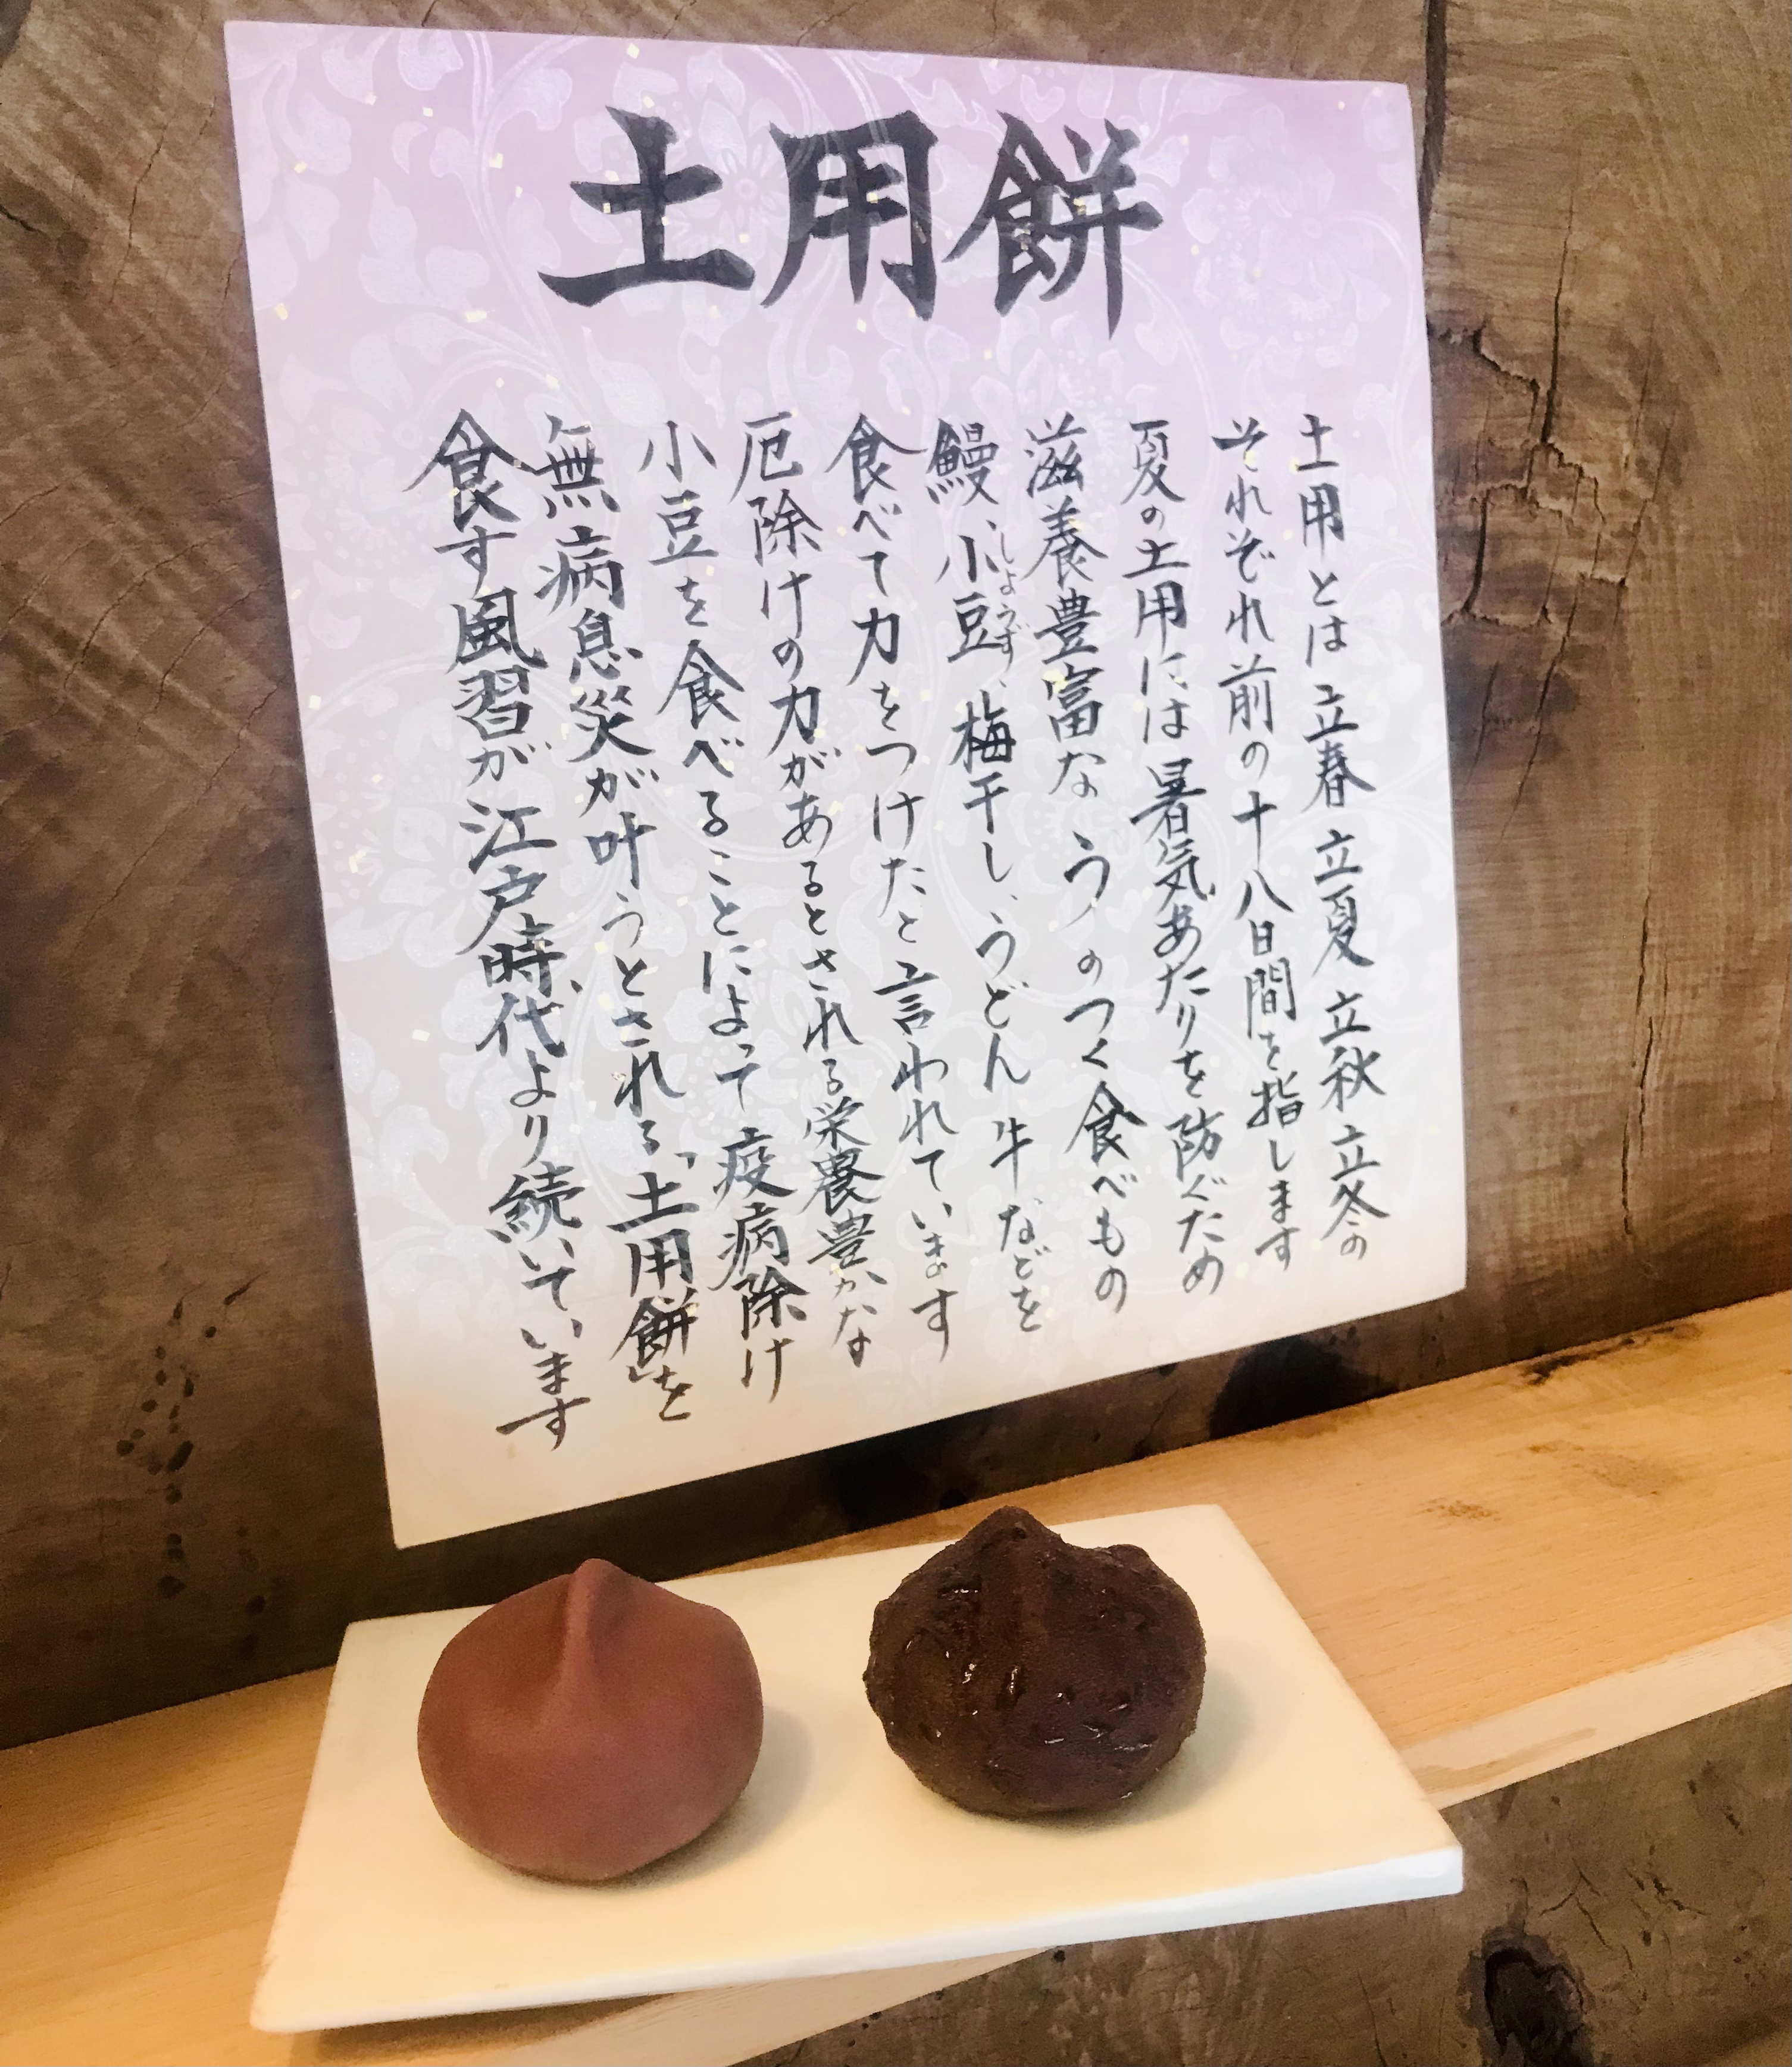 土用餅
土用とは立春 立夏 立秋 立冬の
それぞれ前の十八日間を指します
夏の土用には暑気あたりを防ぐため
滋養豊富な「う」のつく食べもの
鰻、小豆、梅干し、うどん 牛などを
しょうず
食べて力をつけたと言われています
厄除けの力があるとされる栄養豊かな
小豆を食べることによって疫病除け
無病息災が叶うとされる「土用餅」を
食す風習が江戸時代より続いています